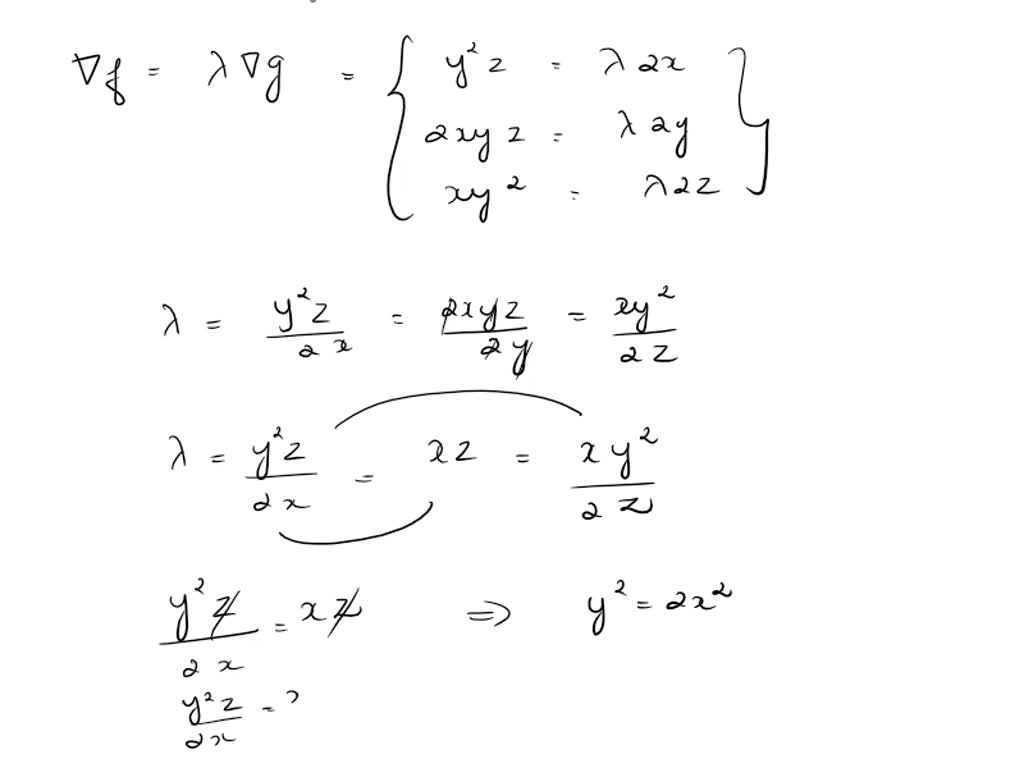 ∇f = λ∇g = { y²z = λ2x
2xyz = λ2y
xy² = λ2z }
λ = y²z/2x = 2xyz/2y = xy²/2z
λ = y²z/2x = xz = xy²/2z
y²z/2x = xz ⇒ y² = 2x²
y²z/2x =